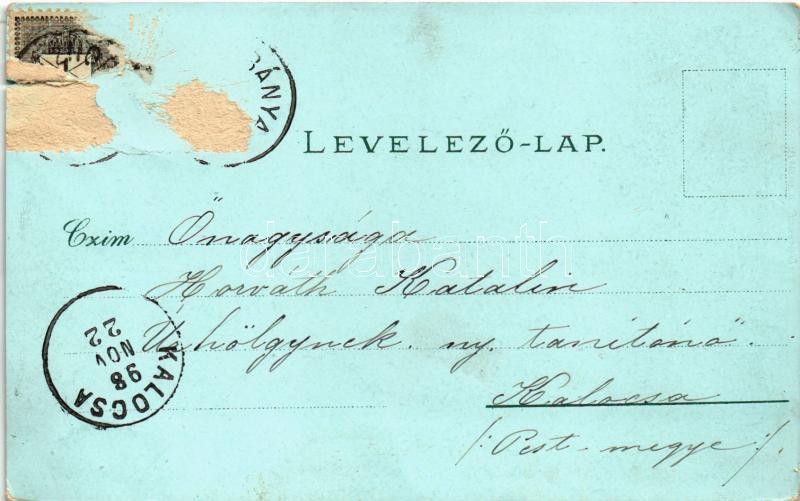 BÁNYA
LEVELEZŐ-LAP.
Czim Őnagysága
Horváth Katalin
Úrhölgynek. ny. tanítónő.
Kalocsa
/: Pest-megye :/.
KALOCSA
98
NOV
22
darabanth